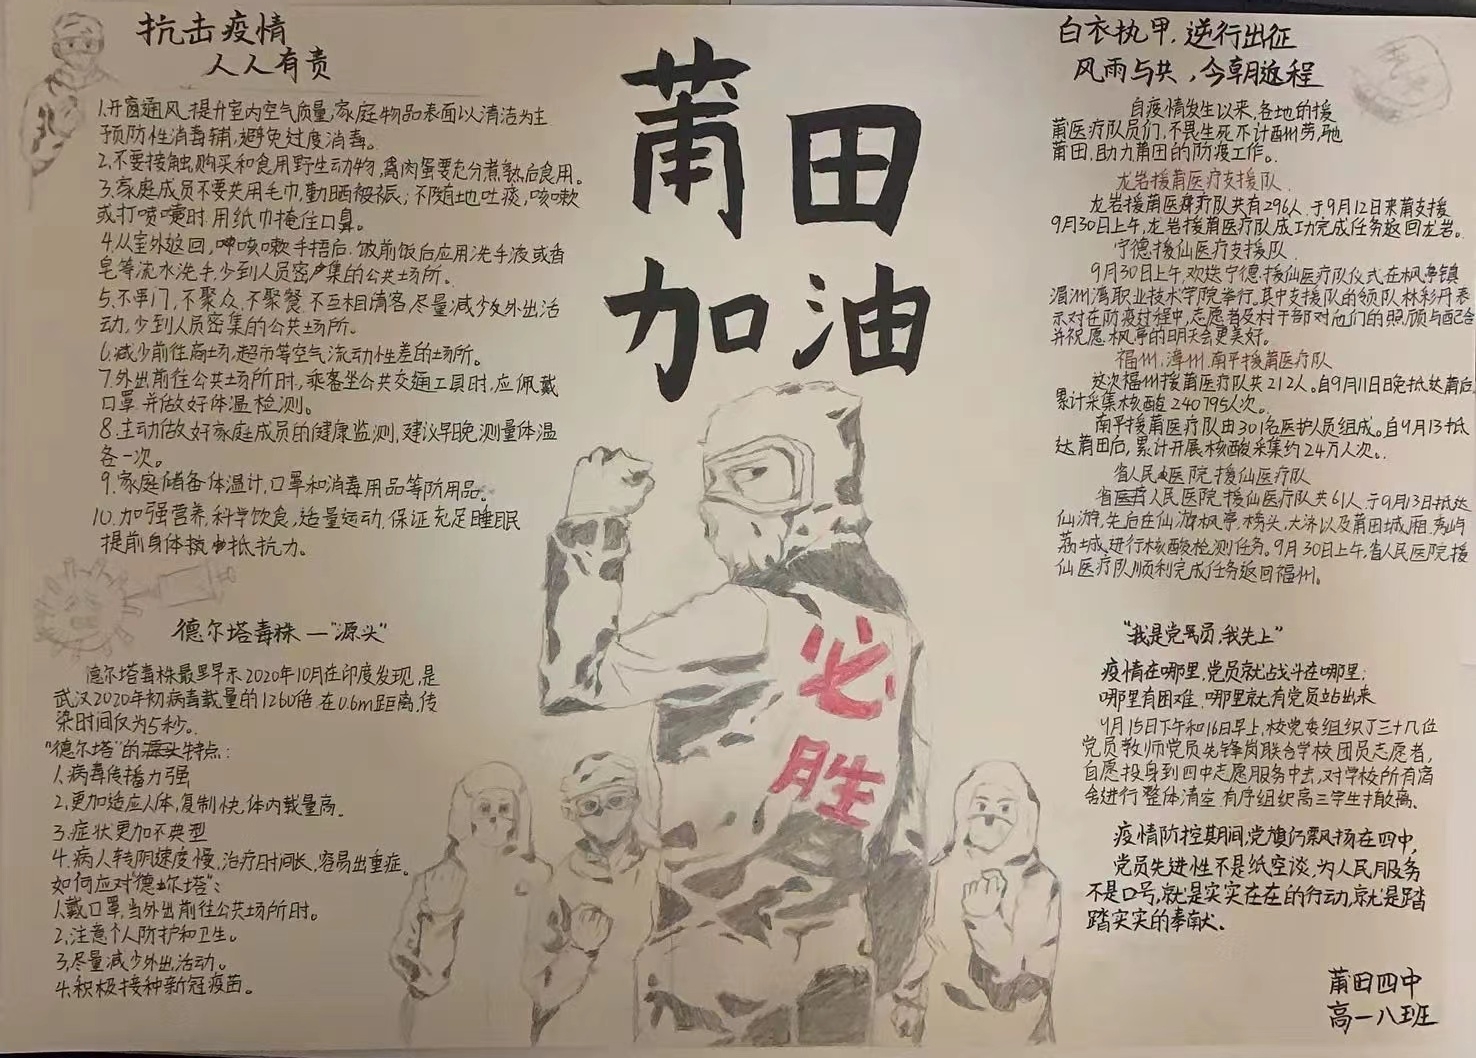 抗击疫情
人人有责
1.开窗通风,提升室内空气质量,家庭物品表面以清洁为主
预防性消毒辅,避免过度消毒。
2.不要接触,购买和食用野生动物,禽肉蛋要充分煮熟后食用。
3.家庭成员不要共用毛巾,勤晒被褥;不随地吐痰,咳嗽
或打喷嚏时,用纸巾掩住口鼻。
4.从室外返回,咳嗽手捂后,饭前饭后应用洗手液或香
皂等流水洗手,少到人员密集的公共场所。
5.不串门,不聚众,不聚餐,不互相请客,尽量减少外出活
动,少到人员密集的公共场所。
6.减少前往商场,超市等空气流动性差的场所。
7.外出前往公共场所时,乘坐公共交通工具时,应佩戴
口罩,并做好体温检测。
8.主动做好家庭成员的健康监测,建议早晚测量体温
各一次。
9.家庭储备体温计,口罩和消毒用品等防用品。
10.加强营养,科学饮食,适量运动,保证充足睡眠
提前身体抵抗力。
德尔塔毒株一"源头"
德尔塔毒株最早于2020年10月在印度发现,是
武汉2020年初病毒载量的1260倍,在0.6m距离,传
染时间仅为5秒。
"德尔塔"的特点:
1.病毒传播力强
2.更加适应人体,复制快,体内载量高。
3.症状更加不典型
4.病人转阴速度慢,治疗时间长,容易出重症。
如何应对"德尔塔":
1.戴口罩,当外出前往公共场所时。
2.注意个人防护和卫生。
3.尽量减少外出活动。
4.积极接种新冠疫苗。
莆田
加油
必
胜
白衣执甲,逆行出征
风雨与共,今朝返程
自疫情发生以来,各地的援
莆医疗队员们,不畏生死,不计酬劳,驰
莆田,助力莆田的防疫工作。
龙岩援莆医疗支援队
龙岩援莆医疗队共有296人,于9月12日来莆支援
9月30日上午,龙岩援莆医疗队成功完成任务返回龙岩。
宁德援仙医疗支援队
9月30日上午,欢送宁德援仙医疗队仪式在枫亭镇
湄洲湾职业技术学院举行,其中支援队的领队林彩丹表
示对在防疫过程中,志愿者及村干部对他们的照顾与配合
并祝愿枫亭的明天会更美好。
福州,漳州,南平援莆医疗队
这次福州援莆医疗队共212人。自9月11日晚抵达莆后
累计采集核酸240795人次。
南平援莆医疗队由301名医护人员组成。自9月13抵
达莆田后,累计开展核酸采集约24万人次。
省人民医院援仙医疗队
省人民医院援仙医疗队共61人,于9月13日抵达
仙游,先后在仙游枫亭,榜头,大济以及莆田城厢,秀屿
荔城,进行核酸检测任务。9月30日上午,省人民医院援
仙医疗队顺利完成任务返回福州。
"我是党员,我先上"
疫情在哪里,党员就战斗在哪里;
哪里有困难,哪里就有党员站出来
9月15日下午和16日早上,校党委组织了三十几位
党员教师党员先锋岗联合学校团员志愿者,
自愿投身到四中志愿服务中去,对学校所有宿
舍进行整体清空,有序组织高三学生撤离。
疫情防控期间,党旗仍飘扬在四中,
党员先进性不是纸空谈,为人民服务
不是口号,就是实实在在的行动,就是踏
踏实实的奉献。
莆田四中
高一八班